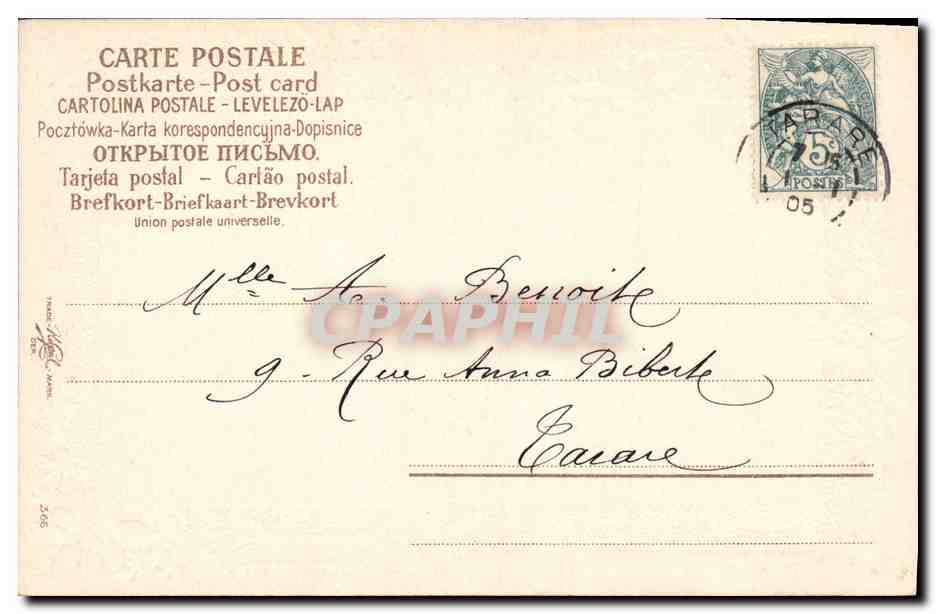 CARTE POSTALE
Postkarte-Post card
CARTOLINA POSTALE - LEVELEZŐ-LAP
Pocztówka-Karta korespondencyjna-Dopisnice
ОТКРЫТОЕ ПИСЬМО.
Tarjeta postal - Cartão postal.
Brefkort-Briefkaart-Brevkort
Union postale universelle.
TARARE
5c
POSTES
05
Mlle A. Benoite
CPAPHIL
9 - Rue Anna Biberte
Tarare
TRADE MARK
DEP.
Z66